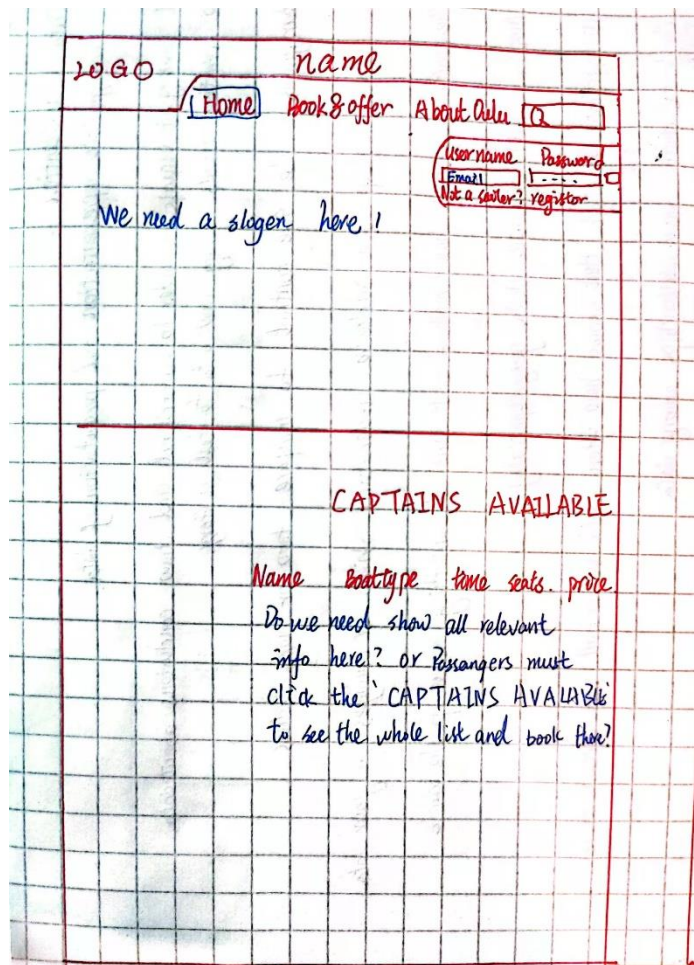 LOGO name
Home Book & offer About Oulu
Username Password
Email ....
Not a sailer? registor
We need a slogen here!
CAPTAINS AVAILABLE
Name Boattype time seats. price
Do we need show all relevant
info here? or Passangers must
click the 'CAPTAINS AVALABLE'
to see the whole list and book there?